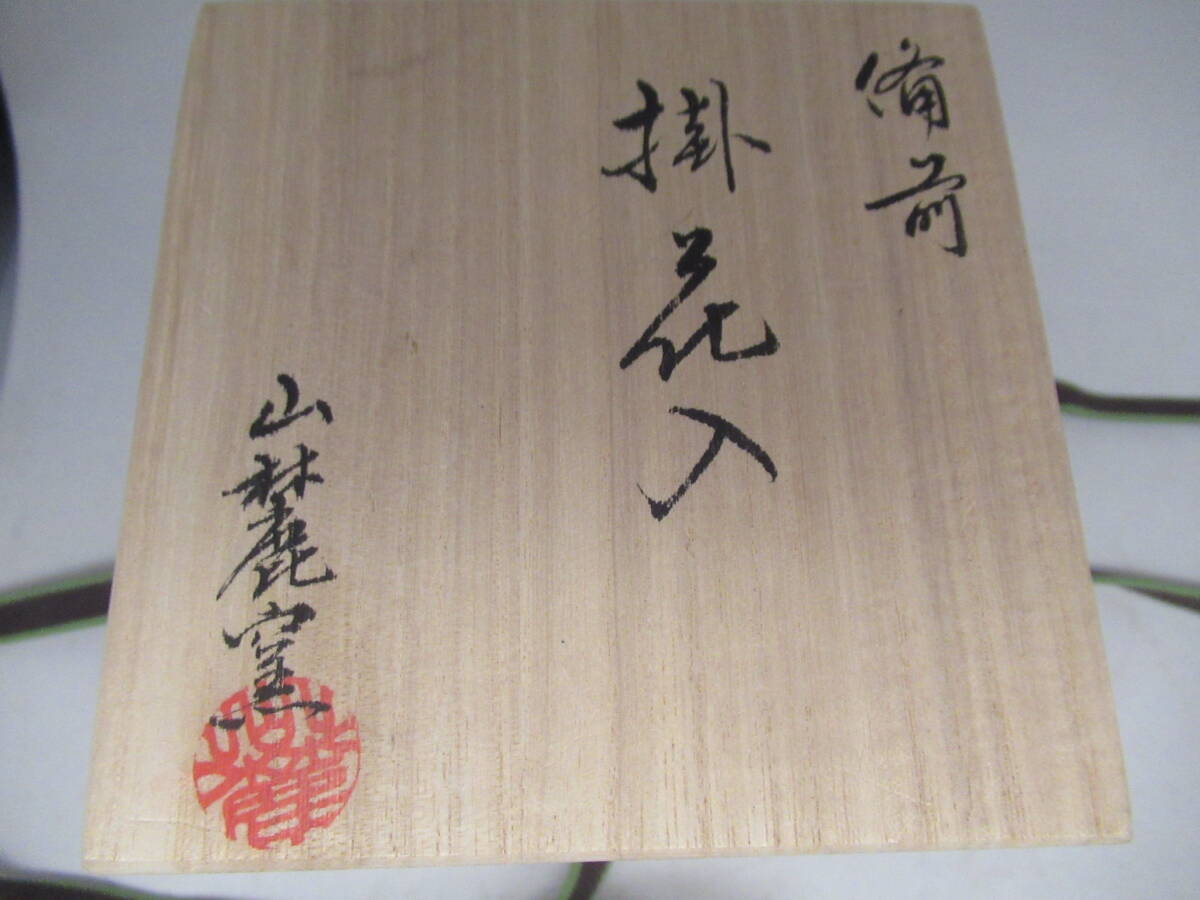 備前
掛花入
山麓窯